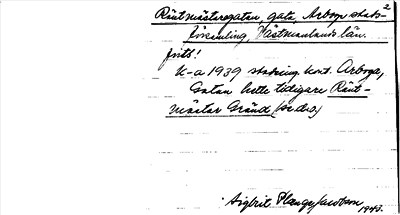 Räntmästaregatan, gata, Arboga stads-2
församling, Västmanlands län.
fints!
K-a 1939 stadsing. kont. Arboga,
Gatan hette tidigare Ränt-
mästar Gränd (se d.o.)
Sigbrit Plænge Jacobson
1943.